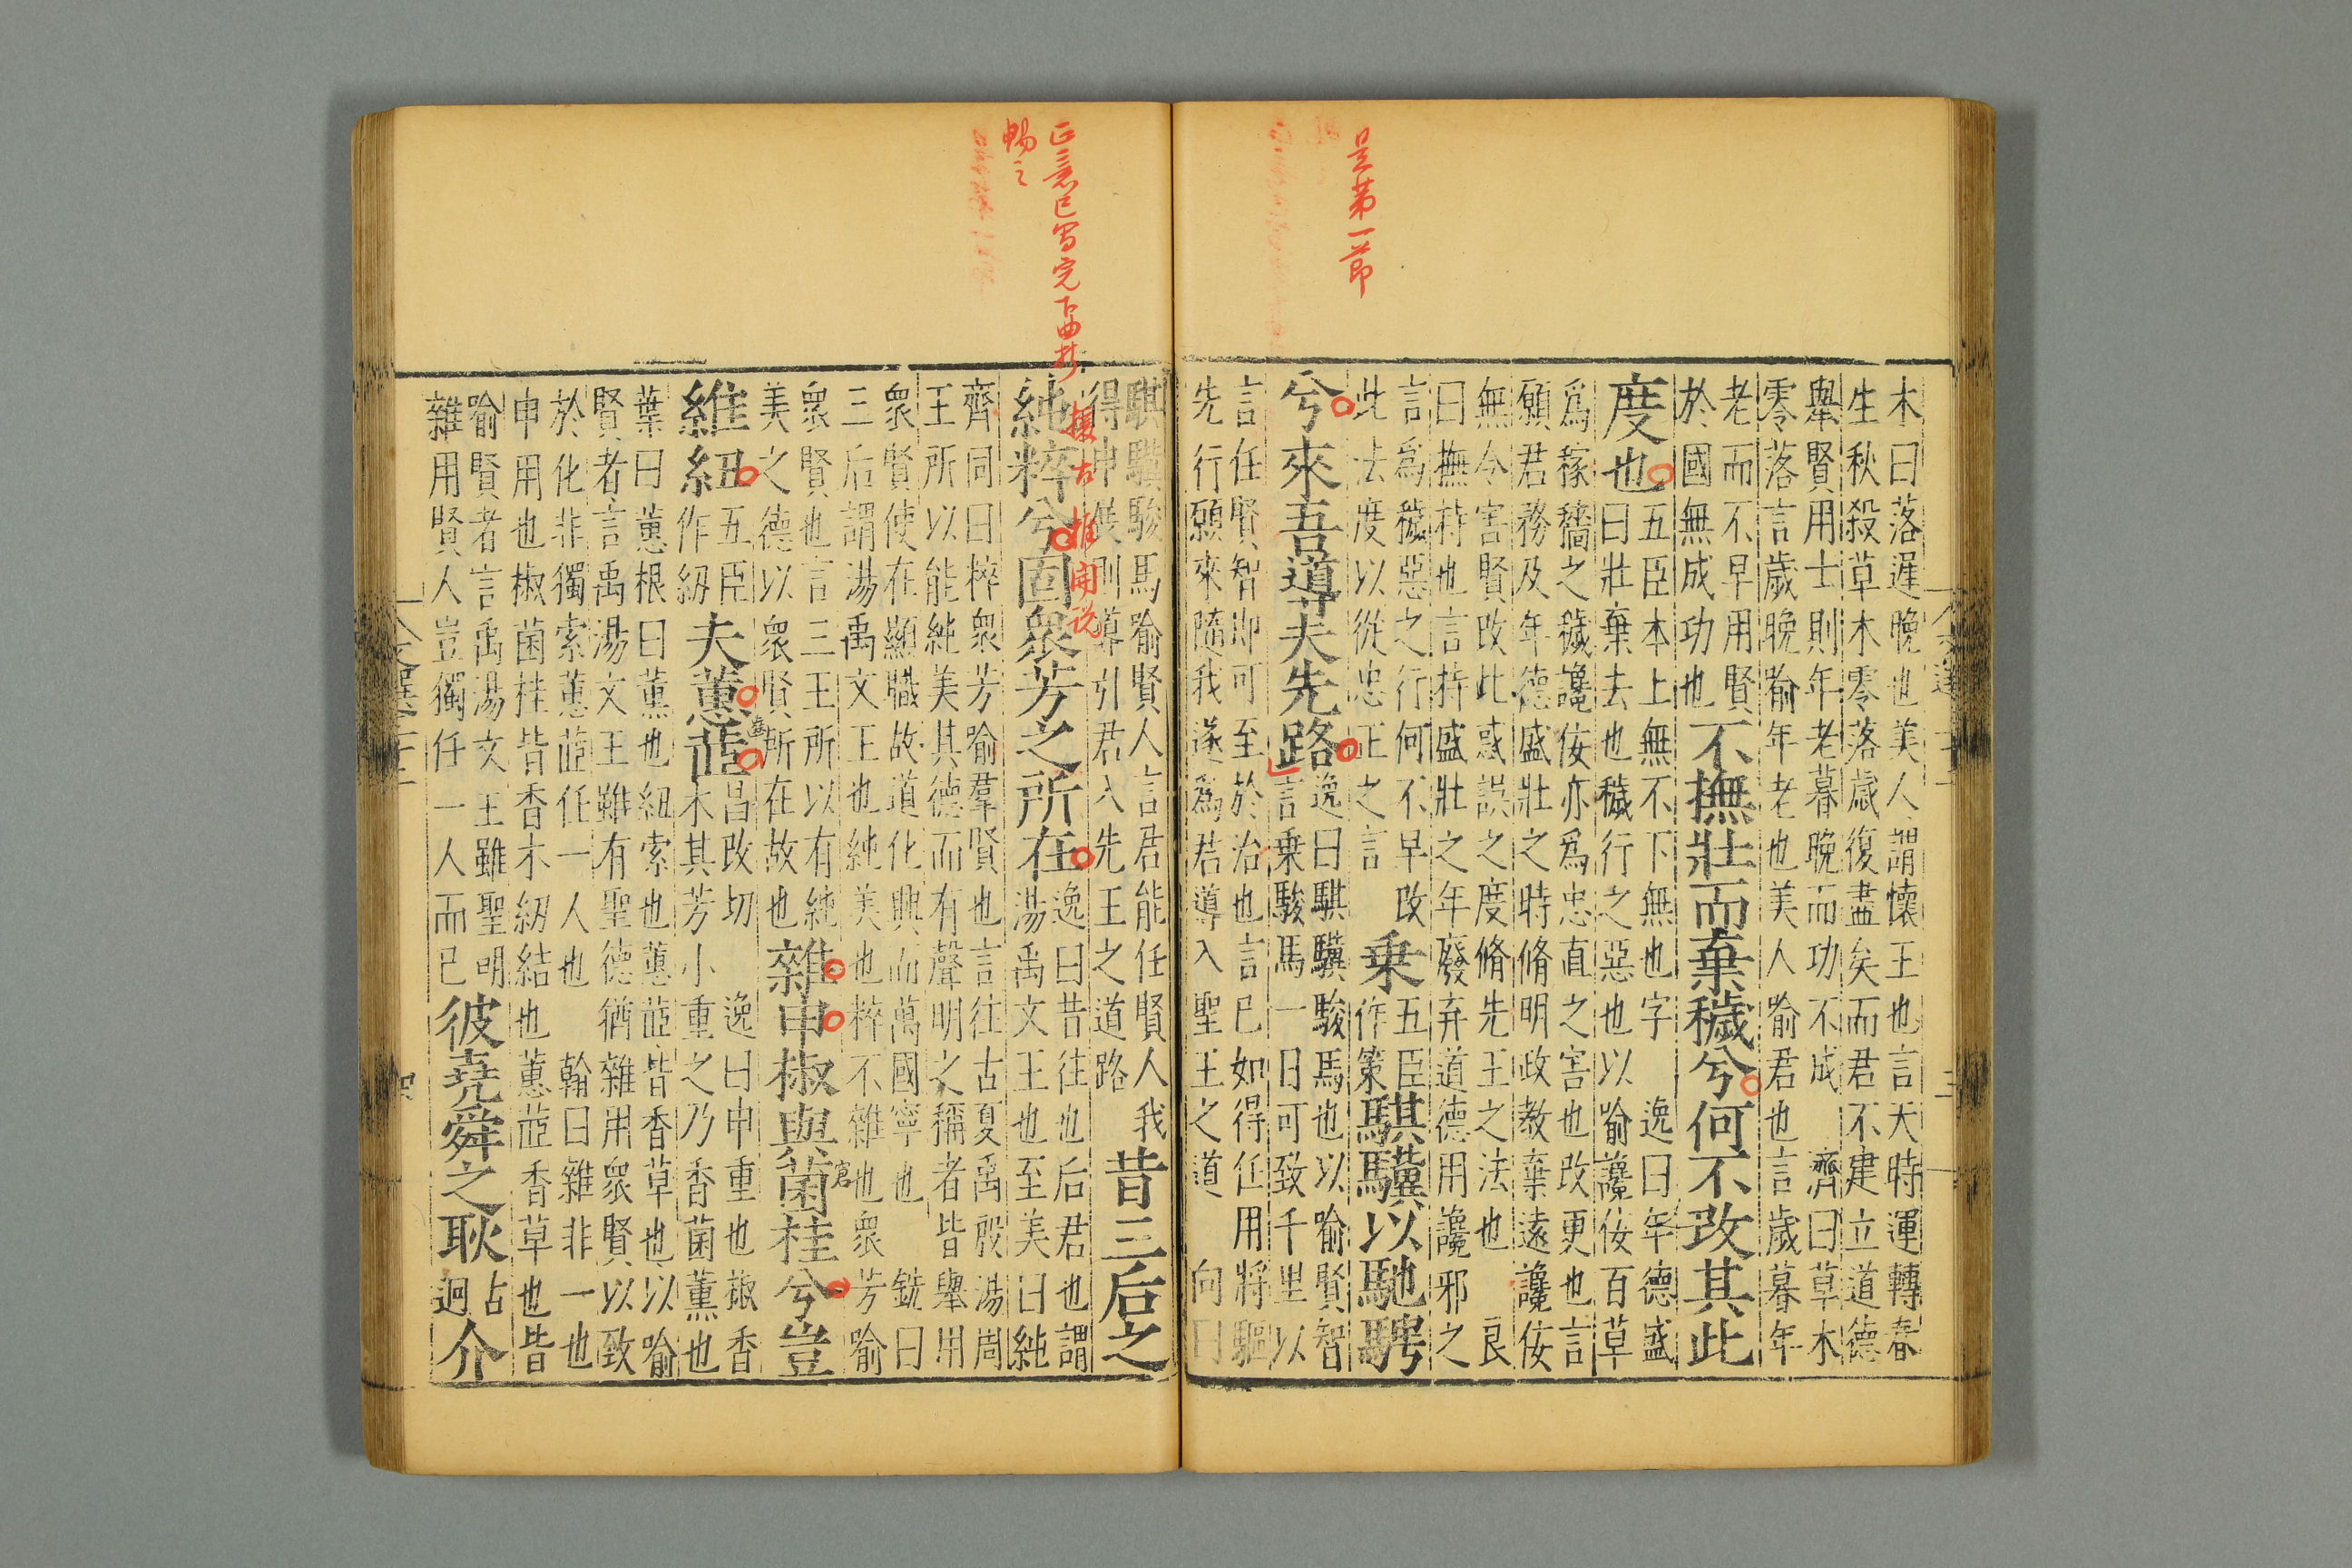 是第一節
木曰落遲晚也美人謂懷王也言天時運轉春
生秋殺草木零落歲復盡矣而君不建立道德
舉賢用士則年老暮晚而功不成 濟曰草木
零落言歲晚喻年老也美人喻君也言歲暮年
老而不早用賢
於國無成功也
不撫壯而棄穢兮何不改其此
度也
五臣本上無不下無也字 逸曰年德盛
曰壯棄去也穢行之惡也以喻讒佞百草
爲稼穡之穢讒佞亦爲忠直之害也改更也言
願君務及年德盛壯之時脩明政教棄遠讒佞
無令害賢改此惑誤之度脩先王之法也 良
曰撫持也言持盛壯之年廢弃道德用讒邪之
言爲穢惡之行何不早改
此法度以從忠正之言
乗
五臣
作策
騏驥以馳騁
兮來吾道夫先路
逸曰騏驥駿馬也以喻賢智
言乗駿馬一日可致千里以
言任賢智即可至於治也言已如得任用將驅
先行願來隨我遂爲君導入聖王之道 向曰
正意已寫完下面打
暢之
援古推開说
騏驥駿馬喻賢人言君能任賢人我
得申展則導引君入先王之道路
昔三后之
純粹兮固衆芳之所在
逸曰昔往也后君也謂
湯禹文王也至美曰純
齊同曰粹衆芳喻羣賢也言往古夏禹殷湯周
王所以能純美其德而有聲明之稱者皆舉用
衆賢使在顯職故道化興而萬國寧也 銑曰
三后謂湯禹文王也純美也粹不雜也衆芳喻
衆賢也言三王所以有純
美之德以衆賢所在故也
雜申椒與菌桂兮豈
維紐
五臣
作紉
夫蕙茝
昌改切
逸曰申重也椒香
木其芳小重之乃香菌薰也
葉曰蕙根曰薰也紐索也蕙茝皆香草也以喻
賢者言禹湯文王雖有聖德猶雜用衆賢以致
於化非獨索蕙茝任一人也 翰曰雜非一也
申用也椒菌桂皆香木紉結也蕙茝香草也皆
喻賢者言禹湯文王雖聖明
雜用賢人豈獨任一人而已
彼堯舜之耿
古
迥
介